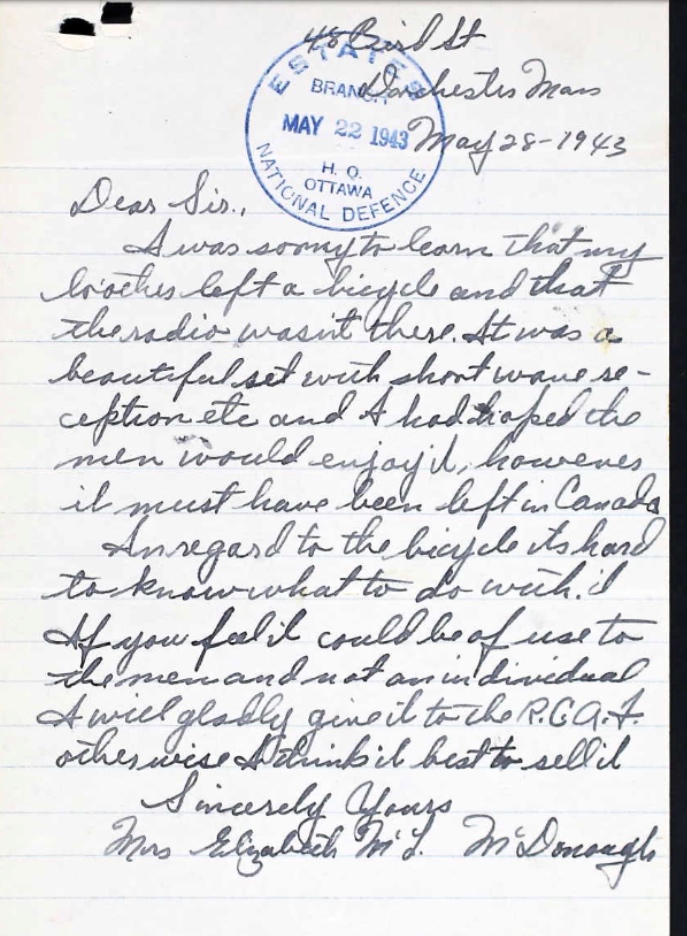 48 Bird St
Dorchester Mass
May 28-1943
ESTATES
BRANCH
MAY 22 1943
H. Q.
OTTAWA
NATIONAL DEFENCE
Dear Sir.,
I was sorry to learn that my
brother left a bicycle and that
the radio wasn't there. It was a
beautiful set with short wave re-
ception etc and I had hoped the
men would enjoy it, however
it must have been left in Canada
In regard to the bicycle its hard
to know what to do with it
If you feel it could be of use to
the men and not an individual
I will gladly give it to the R.C.A.F.
otherwise I think it best to sell it
Sincerely Yours
Mrs Elizabeth McL. McDonough